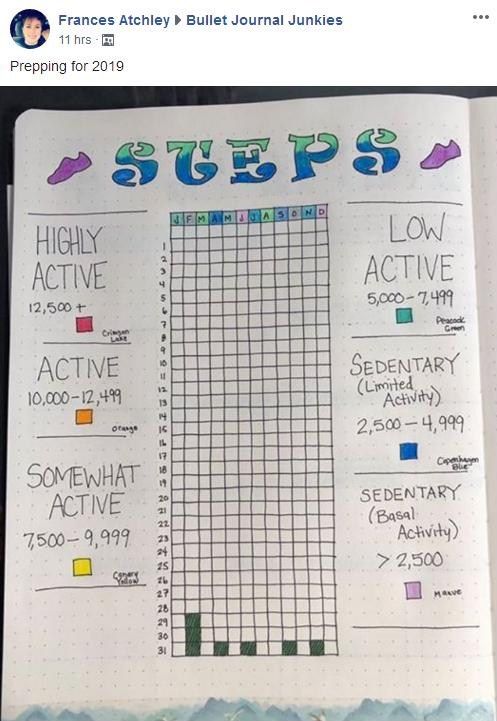 Frances Atchley ▸ Bullet Journal Junkies
11 hrs ·
Prepping for 2019
STEPS
J F M A M J J A S O N D
1
2
3
4
5
6
7
8
9
10
11
12
13
14
15
16
17
18
19
20
21
22
23
24
25
26
27
28
29
30
31
HIGHLY
ACTIVE
12,500 +
Crimson
Lake
ACTIVE
10,000-12,499
Orange
SOMEWHAT
ACTIVE
7,500-9,999
Canary
Yellow
LOW
ACTIVE
5,000-7,499
Peacock
Green
SEDENTARY
(Limited
Activity)
2,500-4,999
Copenhagen
Blue
SEDENTARY
(Basal
Activity)
> 2,500
Mauve